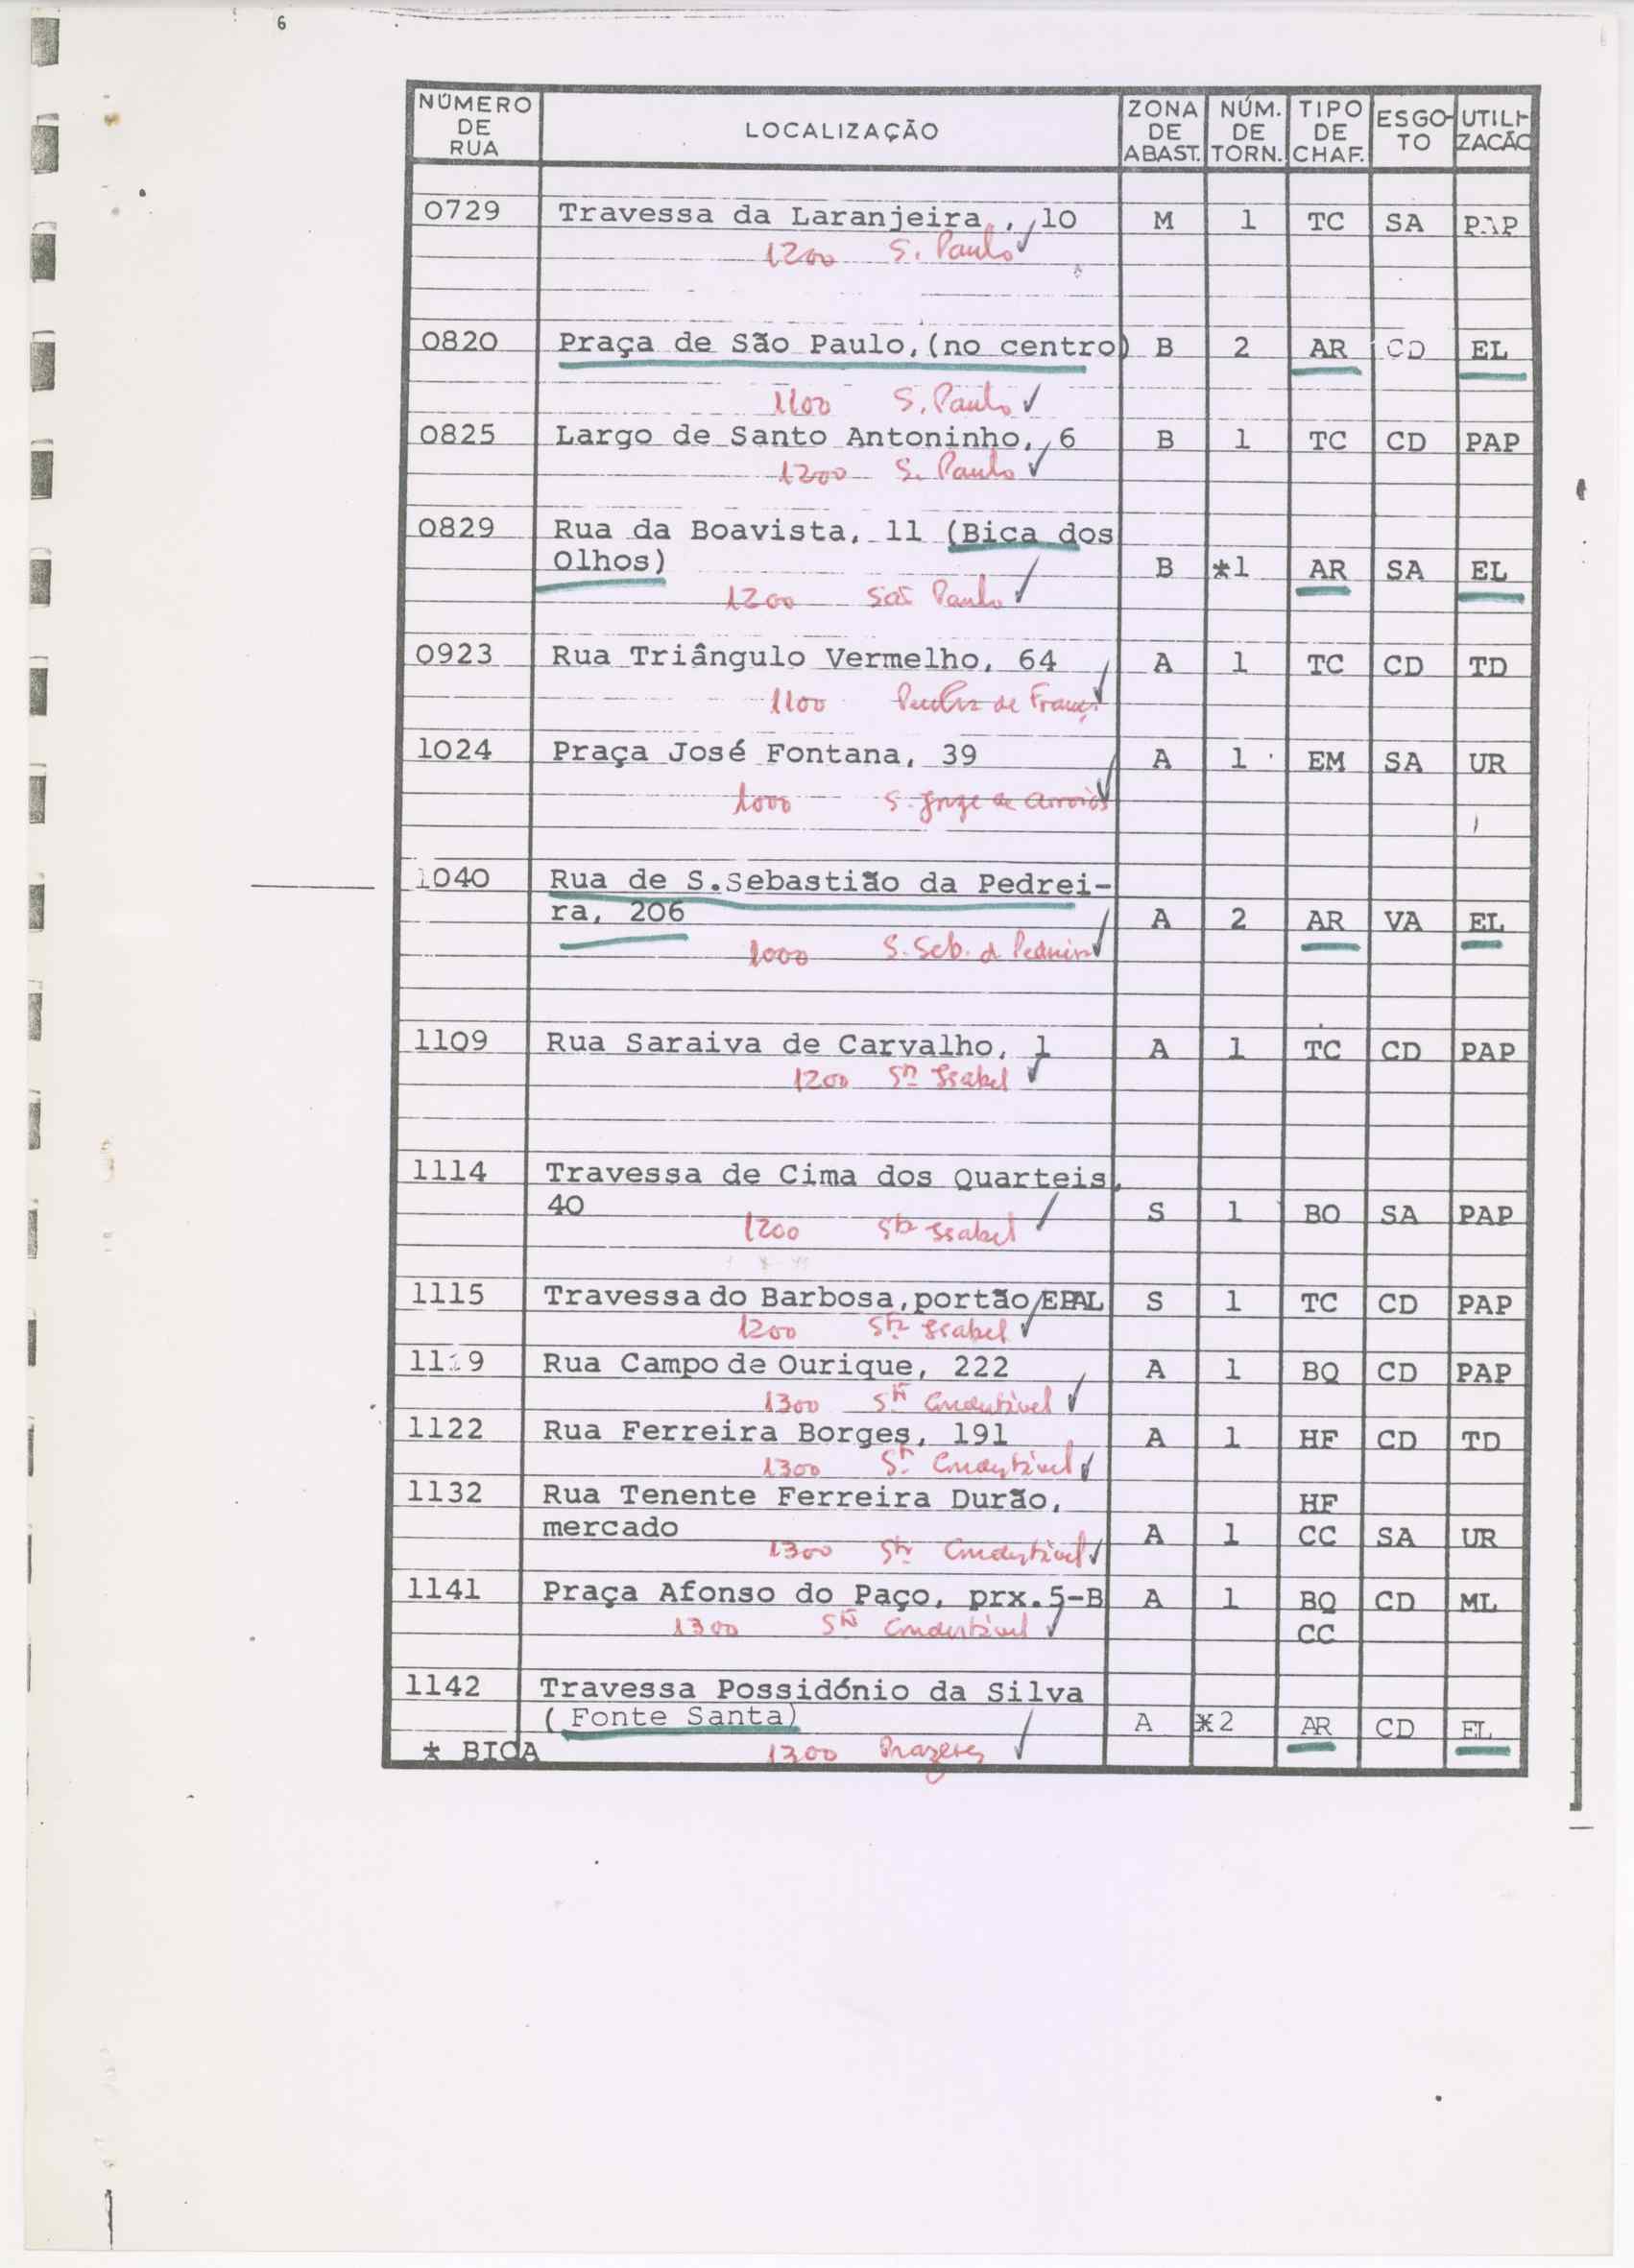 6
NÚMERO DE RUA LOCALIZAÇÃO ZONA DE ABAST. NÚM. DE TORN. TIPO DE CHAF. ESGO-TO UTILI-ZACÃO
0729 Travessa da Laranjeira, 10 M 1 TC SA PAP
1200 S. Paulo
0820 Praça de São Paulo, (no centro) B 2 AR CD EL
1100 S. Paulo
0825 Largo de Santo Antoninho, 6 B 1 TC CD PAP
1200 S. Paulo
0829 Rua da Boavista, 11 (Bica dos
Olhos) B *1 AR SA EL
1200 São Paulo
0923 Rua Triângulo Vermelho, 64 A 1 TC CD TD
1100 Penha de França
1024 Praça José Fontana, 39 A 1 EM SA UR
1000 S. Jorge de Arroios
1040 Rua de S.Sebastião da Pedrei-
ra, 206 A 2 AR VA EL
1000 S. Seb. d Pedreira
1109 Rua Saraiva de Carvalho, 1 A 1 TC CD PAP
1200 Stª Isabel
1114 Travessa de Cima dos Quarteis,
40 S 1 BO SA PAP
1200 Stª Isabel
1115 Travessa do Barbosa, portão/EPAL S 1 TC CD PAP
1200 Stª Isabel
1119 Rua Campo de Ourique, 222 A 1 BQ CD PAP
1300 Stº Condestável
1122 Rua Ferreira Borges, 191 A 1 HF CD TD
1300 Stº Condestável
1132 Rua Tenente Ferreira Durão, HF
mercado A 1 CC SA UR
1300 Stº Condestável
1141 Praça Afonso do Paço, prx.5-B A 1 BQ CD ML
1300 Stº Condestável CC
1142 Travessa Possidónio da Silva
(Fonte Santa) A *2 AR CD EL
* BICA 1300 Prazeres